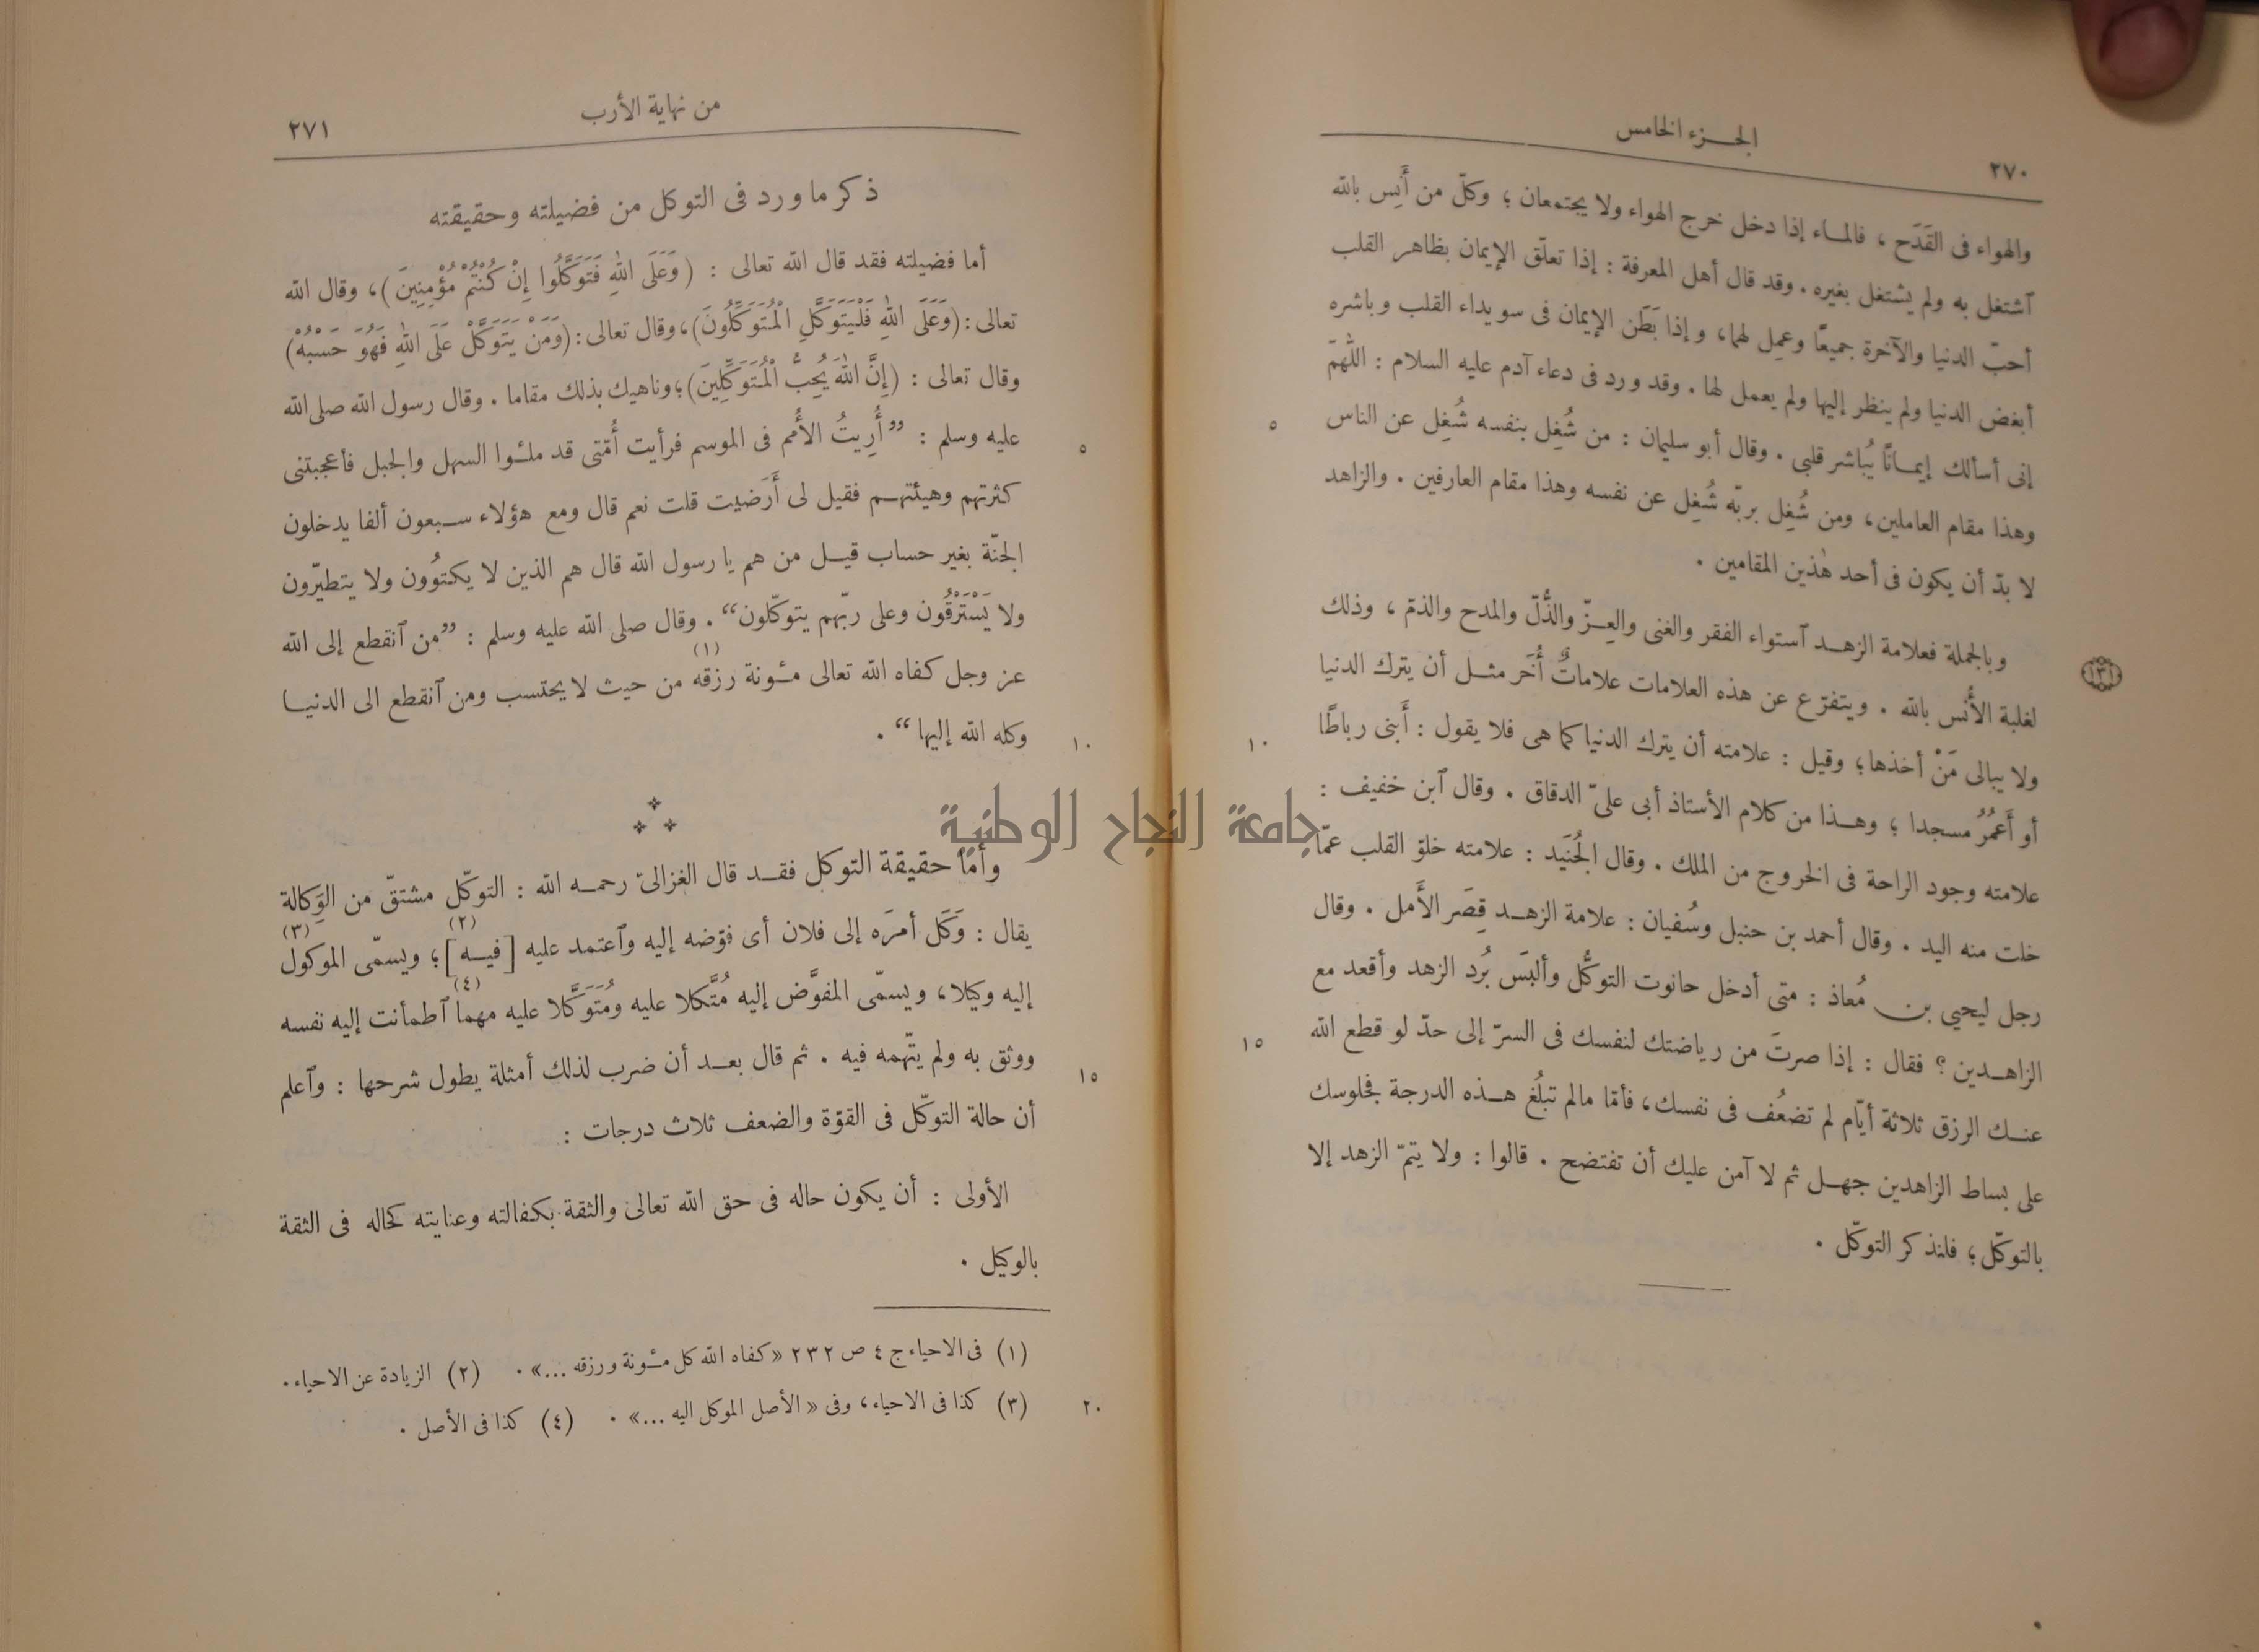 الجزء الخامس
٢٧٠
والهواء فى القَدَح ، فالماء إذا دخل خرج الهواء ولا يجتمعان ؛ وكلّ من أَنِس بالله
ٱشتغل به ولم يشتغل بغيره . وقد قال أهل المعرفة : إذا تعلّق الإيمان بظاهر القلب
أحبّ الدنيا والآخرة جميعًا وعمِل لهما، وإذا بَطَن الإيمان فى سويداء القلب وباشره
أبغض الدنيا ولم ينظر إليها ولم يعمل لها . وقد ورد فى دعاء آدم عليه السلام : اللّٰهمّ
إنى أسألك إيمانًا يُباشر قلبى . وقال أبو سليمان : من شُغِل بنفسه شُغِل عن الناس
٥
وهذا مقام العاملين، ومن شُغِل بربّه شُغِل عن نفسه وهذا مقام العارفين . والزاهد
لا بدّ أن يكون فى أحد هٰذين المقامين .
وبالجملة فعلامة الزهد ٱستواء الفقر والغنى والعِزّ والذُّلّ والمدح والذمّ ، وذلك
١٣١
لغلبة الأُنْس بالله . ويتفرّع عن هذه العلامات علاماتٌ أُخَر مثل أن يترك الدنيا
ولا يبالى مَنْ أخذها؛ وقيل : علامته أن يترك الدنيا كما هى فلا يقول : أَبنى رباطًا
١٠
أو أَعمُرُ مسجدا ؛ وهذا من كلام الأستاذ أبى علىّ الدقاق . وقال ٱبن خفيف :
علامته وجود الراحة فى الخروج من الملك . وقال الجُنَيد : علامته خلوّ القلب عمّا
خلت منه اليد . وقال أحمد بن حنبل وسُفيان : علامة الزهد قِصَر الأَمل . وقال
رجل ليحيى بن مُعاذ : متى أدخل حانوت التوكُّل وألبَس بُرد الزهد وأقعد مع
الزاهدين ؟ فقال : إذا صرتَ من رياضتك لنفسك فى السرّ إلى حدّ لو قطع الله
١٥
عنك الرزق ثلاثة أيّام لم تضعُف فى نفسك، فأمّا مالم تبلُغ هذه الدرجة فجلوسك
على بساط الزاهدين جهل ثم لا آمن عليك أن تفتضح . قالوا : ولا يتمّ الزهد إلا
بالتوكّل؛ فلنذكر التوكّل .
من نهاية الأرب
٢٧١
ذكر ما ورد فى التوكل من فضيلته وحقيقته
أما فضيلته فقد قال الله تعالى : (وَعَلَى اللهِ فَتَوَكَّلُوا إِنْ كُنْتُمْ مُؤْمِنِينَ)، وقال الله
تعالى : (وَعَلَى اللهِ فَلْيَتَوَكَّلِ الْمُتَوَكِّلُونَ)، وقال تعالى : (وَمَنْ يَتَوَكَّلْ عَلَى اللهِ فَهُوَ حَسْبُهُ)
وقال تعالى : (إِنَّ اللهَ يُحِبُّ الْمُتَوَكِّلِينَ)؛ وناهيك بذلك مقاما . وقال رسول الله صلى الله
عليه وسلم : ”أُرِيتُ الأُمم فى الموسم فرأيت أُمّتى قد ملئوا السهل والجبل فأعجبتنى
٥
كثرتهم وهيئتهم فقيل لى أَرَضيت قلت نعم قال ومع هؤلاء سبعون ألفا يدخلون
الجنّة بغير حساب قيل من هم يا رسول الله قال هم الذين لا يكتوُون ولا يتطيّرون
ولا يَسْتَرْقُون وعلى ربّهم يتوكّلون“ . وقال صلى الله عليه وسلم : ”من ٱنقطع إلى الله
عز وجل كفاه الله تعالى مئونة رزقه (١) من حيث لا يحتسب ومن ٱنقطع الى الدنيا
وكله الله إليها“ .
١٠
جامعة النجاح الوطنية
وأمّا حقيقة التوكل فقد قال الغزالىّ رحمه الله : التوكّل مشتقّ من الوَكالة
يقال : وَكَل أمرَه إلى فلان أى فوّضه إليه وٱعتمد عليه [فيه] (٢)؛ ويسمّى الموكول (٣)
إليه وكيلا، ويسمّى المفوِّض إليه مُتَّكلا عليه ومُتَوَكِّلا عليه مهما (٤) ٱطمأنت إليه نفسه
ووثق به ولم يتّهمه فيه . ثم قال بعد أن ضرب لذلك أمثلة يطول شرحها : وٱعلم
١٥
أن حالة التوكّل فى القوّة والضعف ثلاث درجات :
الأولى : أن يكون حاله فى حق الله تعالى والثقة بكفالته وعنايته كحاله فى الثقة
بالوكيل .
(١) فى الاحياء ج ٤ ص ٢٣٢ «كفاه الله كل مئونة ورزقه ...» . (٢) الزيادة عن الاحياء .
(٣) كذا فى الاحياء، وفى «الأصل الموكل اليه ...» . (٤) كذا فى الأصل .
٢٠